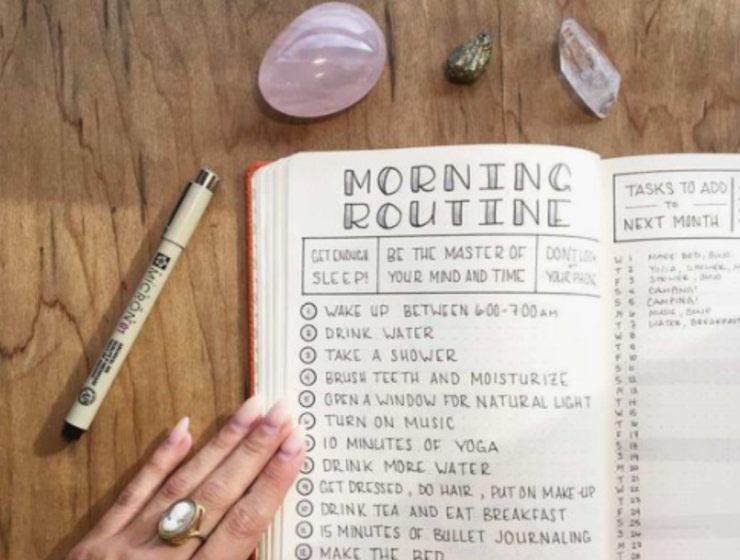 MORNING
ROUTINE
GET ENOUGH
SLEEP!
BE THE MASTER OF
YOUR MIND AND TIME
DON'T LOOK
YOUR PHONE
1 WAKE UP BETWEEN 6:00-7:00 AM
2 DRINK WATER
3 TAKE A SHOWER
4 BRUSH TEETH AND MOISTURIZE
5 OPEN A WINDOW FOR NATURAL LIGHT
6 TURN ON MUSIC
7 10 MINUTES OF YOGA
8 DRINK MORE WATER
9 GET DRESSED, DO HAIR, PUT ON MAKE-UP
10 DRINK TEA AND EAT BREAKFAST
11 15 MINUTES OF BULLET JOURNALING
12 MAKE THE BED
TASKS TO ADD
TO
NEXT MONTH
W 1 MAKE BED,
T 2 YOGA, SHOWER,
F 3 SHOWER,
S 4 CAMPING!
S 5 CAMPING!
M 6 MUSIC,
T 7 WATER, BREAKFAST
W 8
T 9
F 10
S 11
S 12
M 13
T 14
W 15
T 16
F 17
S 18
S 19
M 20
T 21
W 22
T 23
F 24
S 25
S 26
M 27
T 28
MICRON